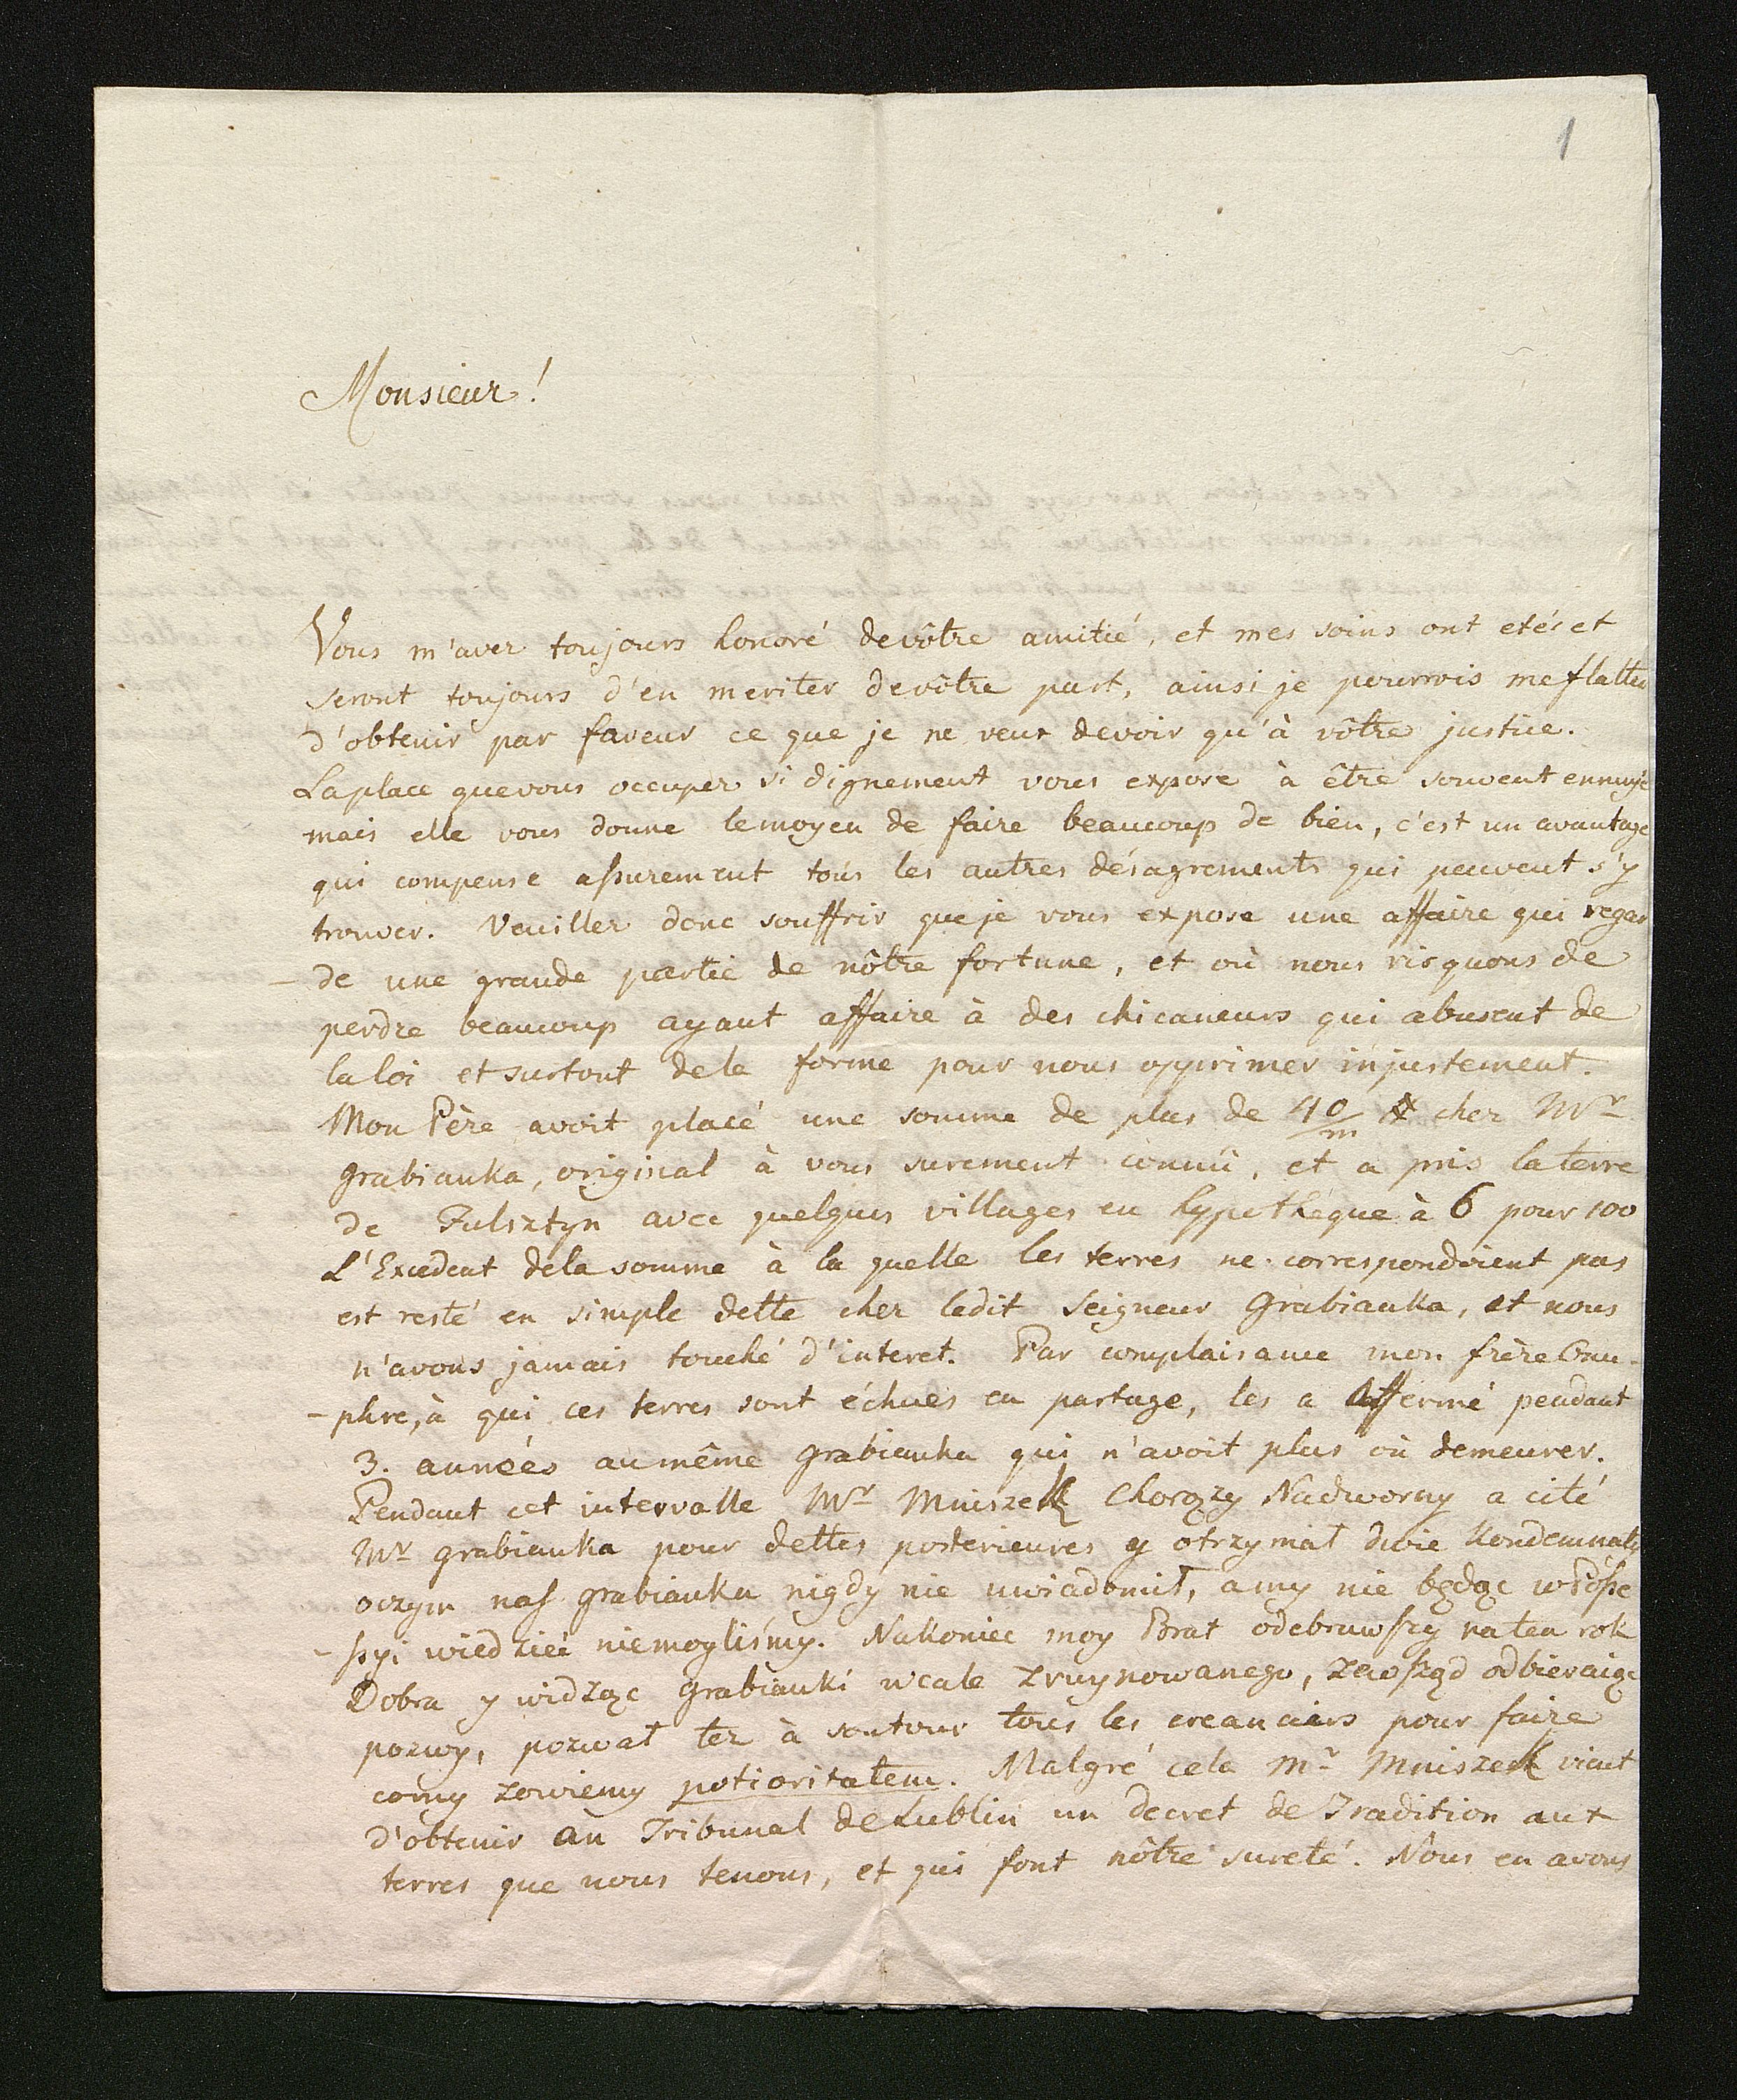 1
Monsieur!
Vous m'avez toujours honoré de vôtre amitié, et mes soins ont etés et
seront toujours d'en meriter de vôtre part, ainsi je pourrois me flatter
d'obtenir par faveur ce que je ne veux devoir qu'à vôtre justice.
La place que vous occupez si dignement vous expose à être souvent ennuyé
mais elle vous donne le moyen de faire beaucoup de bien, c'est un avantage
qui compense assurement tous les autres désagrements qui peuvent s'y
trouver. Veuillez donc souffrir que je vous expose une affaire qui regar
- de une grande partie de nôtre fortune, et où nous risquons de
perdre beaucoup ayant affaire à des chicaneurs qui abusent de
la loi et surtout de la forme pour nous opprimer injustement.
Mon Père avoit placé une somme de plus de 40/m # chez Mr
Grabianka, original à vous surement connû, et a pris la terre
de Fulsztyn avec quelques villages en hypothéque à 6 pour 100
L'Excedent de la somme à la quelle les terres ne correspondoient pas
est resté en simple dette chez ledit Seigneur Grabianka, et nous
n'avons jamais touché d'interet. Par complaisance mon frère Onu-
- phre, à qui ces terres sont échues en partage, les a affermé pendant
3. années au même Grabianka qui n'avoit plus où demeurer.
Pendant cet intervalle Mr Mniszek Chorąży Nadworny a cité
Mr Grabianka pour dettes posterieures y otrzymał dwie Kondemnaty
o czym nas Grabianka nigdy nie uwiadomił, a my nie będąc w Posse
- ssyi wiedzieć niemogliśmy. Nakoniec moy Brat odebrawszy na ten rok
Dobra y widząc Grabianki wcale zruynowanego, zewsząd odbieraiąc
pozwy, pozwał też à son tour tous les creanciers pour faire
co my zowiemy potioritatem. Malgré cela Mr Mniszek vient
d'obtenir au Tribunal de Lublin un decret de Tradition aux
terres que nous tenons, et qui font nôtre sureté. Nous en avons